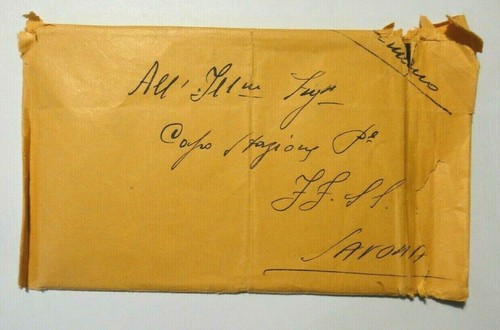 All' Ill.mo Sig.
Capo Stazione P.le
FF. SS.
SAVONA